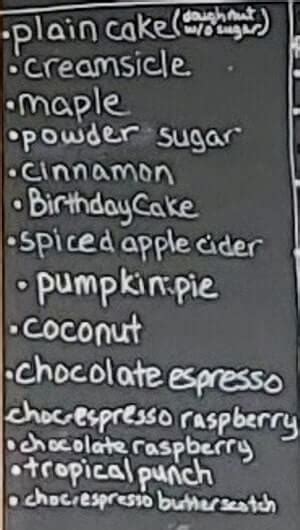 •plain cake (doughnut w/o sugar)
•creamsicle
•maple
•powder sugar
•cinnamon
•Birthday Cake
•spiced apple cider
•pumpkin pie
•coconut
•chocolate espresso
choc.espresso raspberry
•chocolate raspberry
•tropical punch
•choc.espresso butterscotch